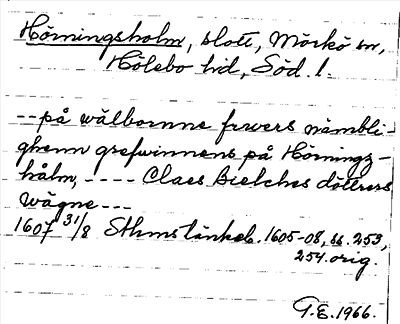 Hörningsholm, slott, Mörkö sn,
Hölebo hd, Söd. l.
-- på wälbornne frwers nämbli-
ghenn grefwinnens på Hörningz-
hålm, ---- Claes Bielches döttrers
wägne ---
1607 31/8 Sthms tänkeb. 1605-08, ss. 253,
254. orig.
G.E. 1966.